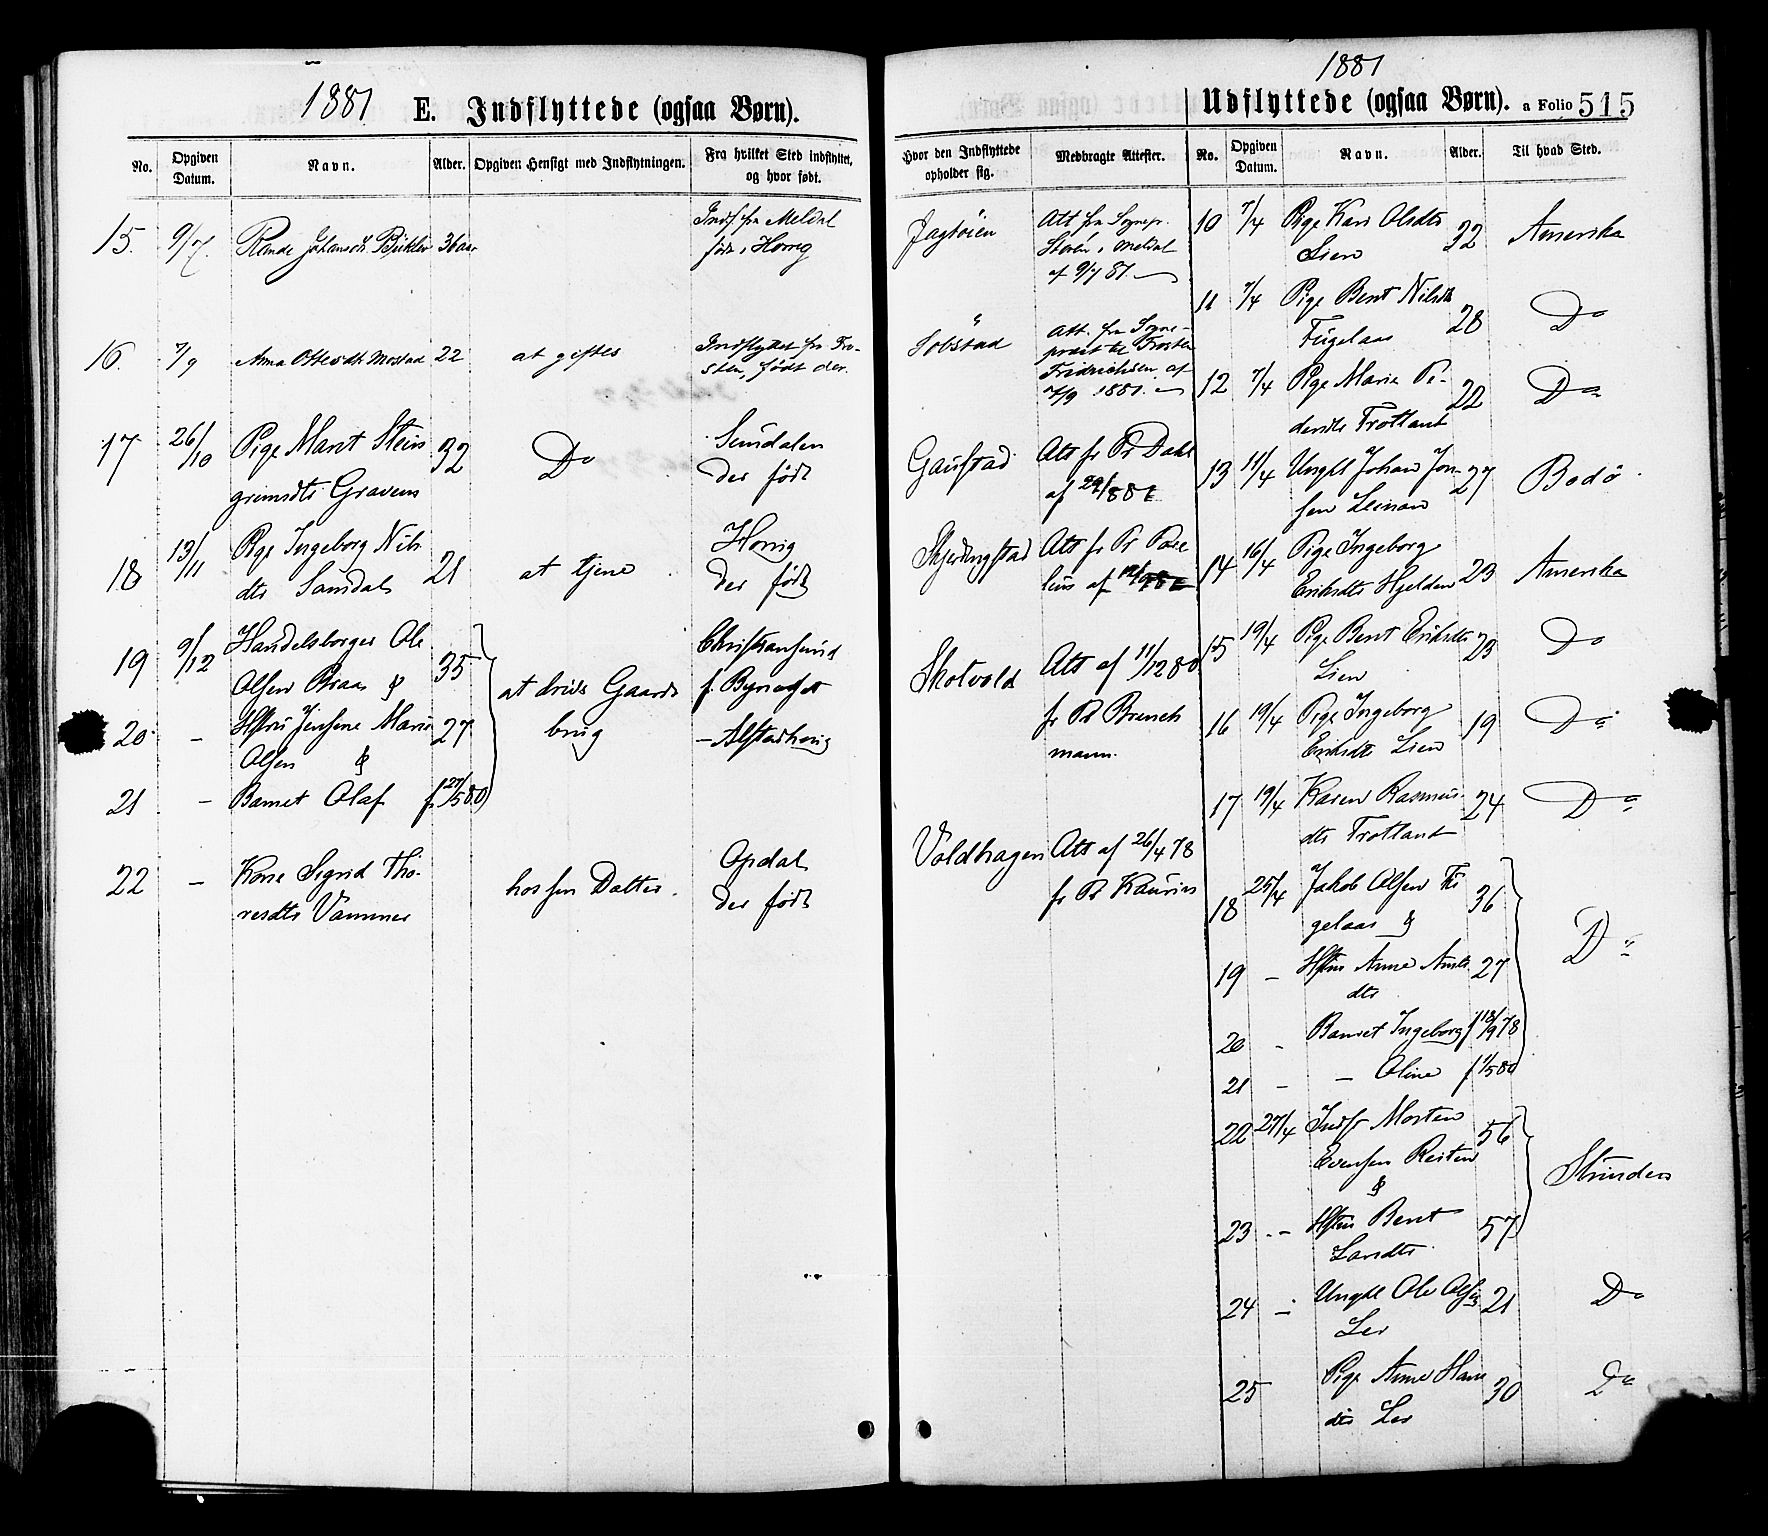 1881
E. Indflyttede (ogsaa Børn).
No.
Opgiven Datum.
Navn.
Alder.
Opgiven Hensigt med Indflytningen.
Fra hvilket Sted indflyttet, og hvor født.
15.
9/7.
36 aar
Indf fra Meldal
født i
16.
7/9
Anna Mostad
22
at giftes
Indflyttet fr Fro-
sten, født der.
17
26/10
Pige Marit Stein
grimsdtr Gravem
32
Do
Sundalen
der født
18
13/11
Pige Ingeborg Nils
dtr
21
at tjene
der født
19
9/12
Handelsborger Ole
Olsen Braa &
35
at drive Gaards
brug
Christiansund
f. Bynæsset
20
-
Hstru Jensine Marie
Olsen &
27
21
-
Barnet Olaf
f. 27/5 80
22
-
Kone Sigrid Tho-
resdtr
hos sin Datter.
Opdal
der født
1881
Udflyttede (ogsaa Børn).
a Folio 515
Hvor den Indflyttede opholder sig.
Medbragte Attester.
No.
Opgiven Datum.
Navn.
Alder.
Til hvad Sted.
Att fra Sognepr.
Støren i Meldal
af 9/7 81.
Søbstad
Att. fra Sogne-
præst til Frosten
Fridrichsen af
7/9 1881.
Gaustad
Att fr Pr Dahl
Skjerdingstad
Att fr Pr
Skotvold
Att af 11/12 80
fr Pr Brinch
mann.
Voldhagen
Att af 26/4 78
fr Pr Kaurin
10
7/4
Pige Kari Olsdtr
Lien
32
Amerika
11
7/4
Pige Berit Nilsdtr
Fugelaas
28
Do
12
7/4
Pige Marie Pe-
dersdtr Trotland
22
Do
13
11/4
Ungkl Johan Jon-
sen Leinan
27
Bodø
14
16/4
Pige Ingeborg
Eriksdtr Hjelden
23
Amerika
15
19/4
Pige Berit Eriksdtr
Lien
23
Do
16
19/4
Pige Ingeborg
Eriksdtr Lien
19
Do
17
19/4
Karen Rasmus-
dtr Trotland
24
Do
18
25/4
Jakob Olsen Fu
gelaas &
36
Do
19
-
Hstru Anne Arnts
dtr
27
20
-
Barnet Ingeborg
f 18/9 78
21
-
- Oline
f 1/5 80
22
27/4
Indst Morten
Evensen Reiten
&
56
Strinden
23
-
Hstru Berit
Larsdtr
57
24
-
Ungkl Ole Olsen
Ler
21
Do
25
Pige Anne Hans
dtr Ler
30
Do